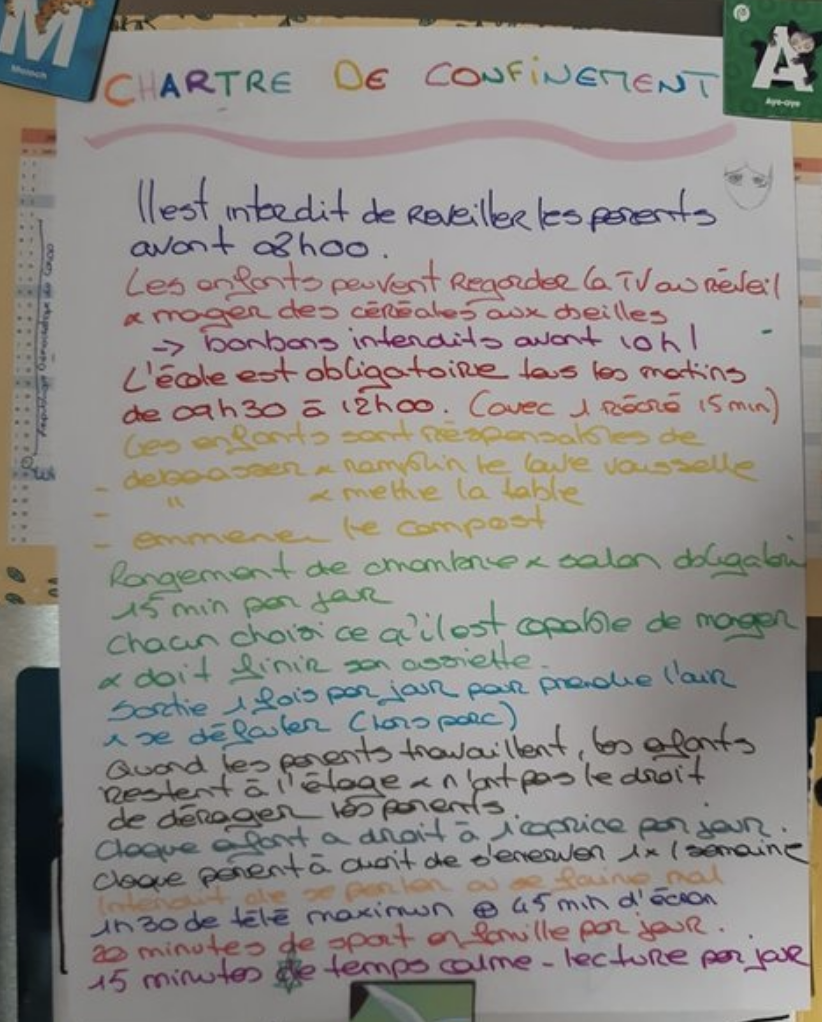 M
Moloch
A
Aye-aye
CHARTRE DE CONFINEMENT
Il est interdit de Reveiller les parents
avant 08h00.
Les enfants peuvent Regarder la TV au Réveil
& manger des céréales aux
→ bonbons interdits avant 10h!
L'école est obligatoire tous les matins
de 09h30 à 12h00. (avec 1 Récré 15min)
Les enfants sont Responsables de
- debarasser & le lave vaisselle
- " & mettre la table
- emmener le compost
Rangement de chambre & salon obligatoire
15 min par jour
Chacun choisi ce qu'il est capable de manger
& doit finir son assiette.
Sortie 1 fois par jour pour prendre l'air
& se défouler (hors parc)
Quand les parents travaillent, les enfants
Restent à l'étage & n'ont pas le droit
de déranger les parents
Chaque enfant a droit à 1 caprice par jour.
Chaque parent à droit de s'enerver 1x / semaine
Interdit de se parler ou se faire mal
1h30 de télé maximum ⊕ 45 min d'écran
20 minutes de sport en famille par jour.
15 minutes de temps calme - lecture par jour